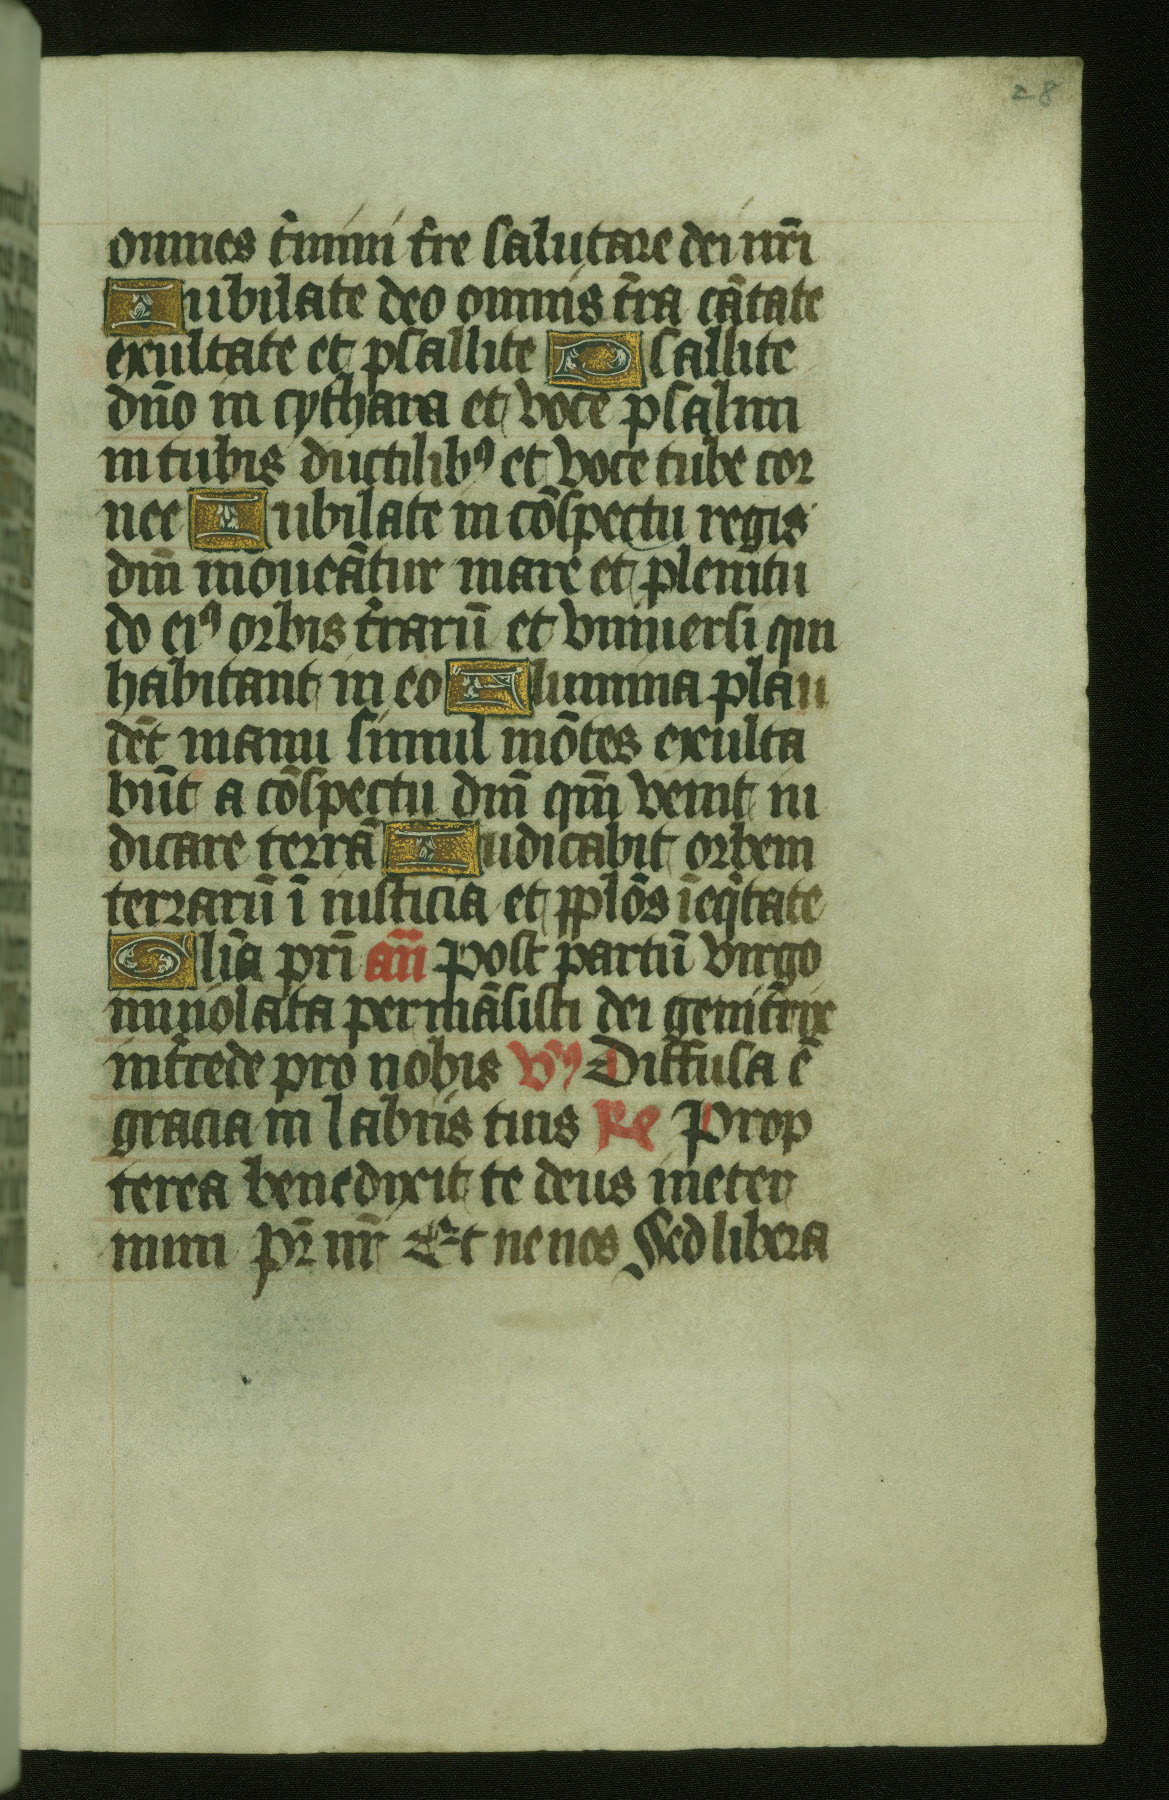 28
omnes t̄mini t̄re salutare dei nr̄i
Iubilate deo omnis t̄ra cātate
exultate et psallite Psallite
dn̄o in cythara et voce psalmi
in tubis ductilibꝰ et voce tube cor
nee Iubilate in cōspectu regis
dn̄i moueātur mare et plenitu
do eiꝰ orbis t̄rarū et vniuersi qui
habitant in eo Flumina plau
dēt manu simul mōtes exulta
būt a cōspectu dn̄i qm̄ venit iu
dicare terrā Iudicabit orbem
terrarū ī iusticia et pp̄lōs ī eq̄tate
Glīa pri̅ an̄ Post partū virgo
inuiolata permāsisti dei genit̄rix
int̄cede pro nobis Vꝰ Diffusa ē
gracia in labiis tuis Re Prop
terea benedixit te deus in eter
num Pr̄ nr̄ Et ne nos Sed libera